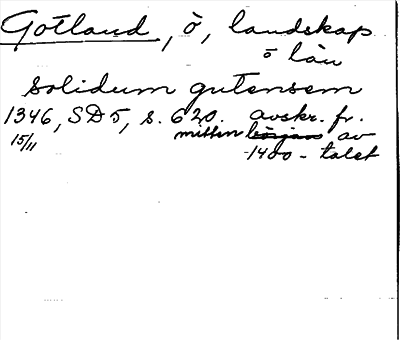 Gotland, ö, landskap
o län
solidum gutensem
1346, SD 5, s. 620. avskr. fr.
15/11 mitten början av
1400-talet